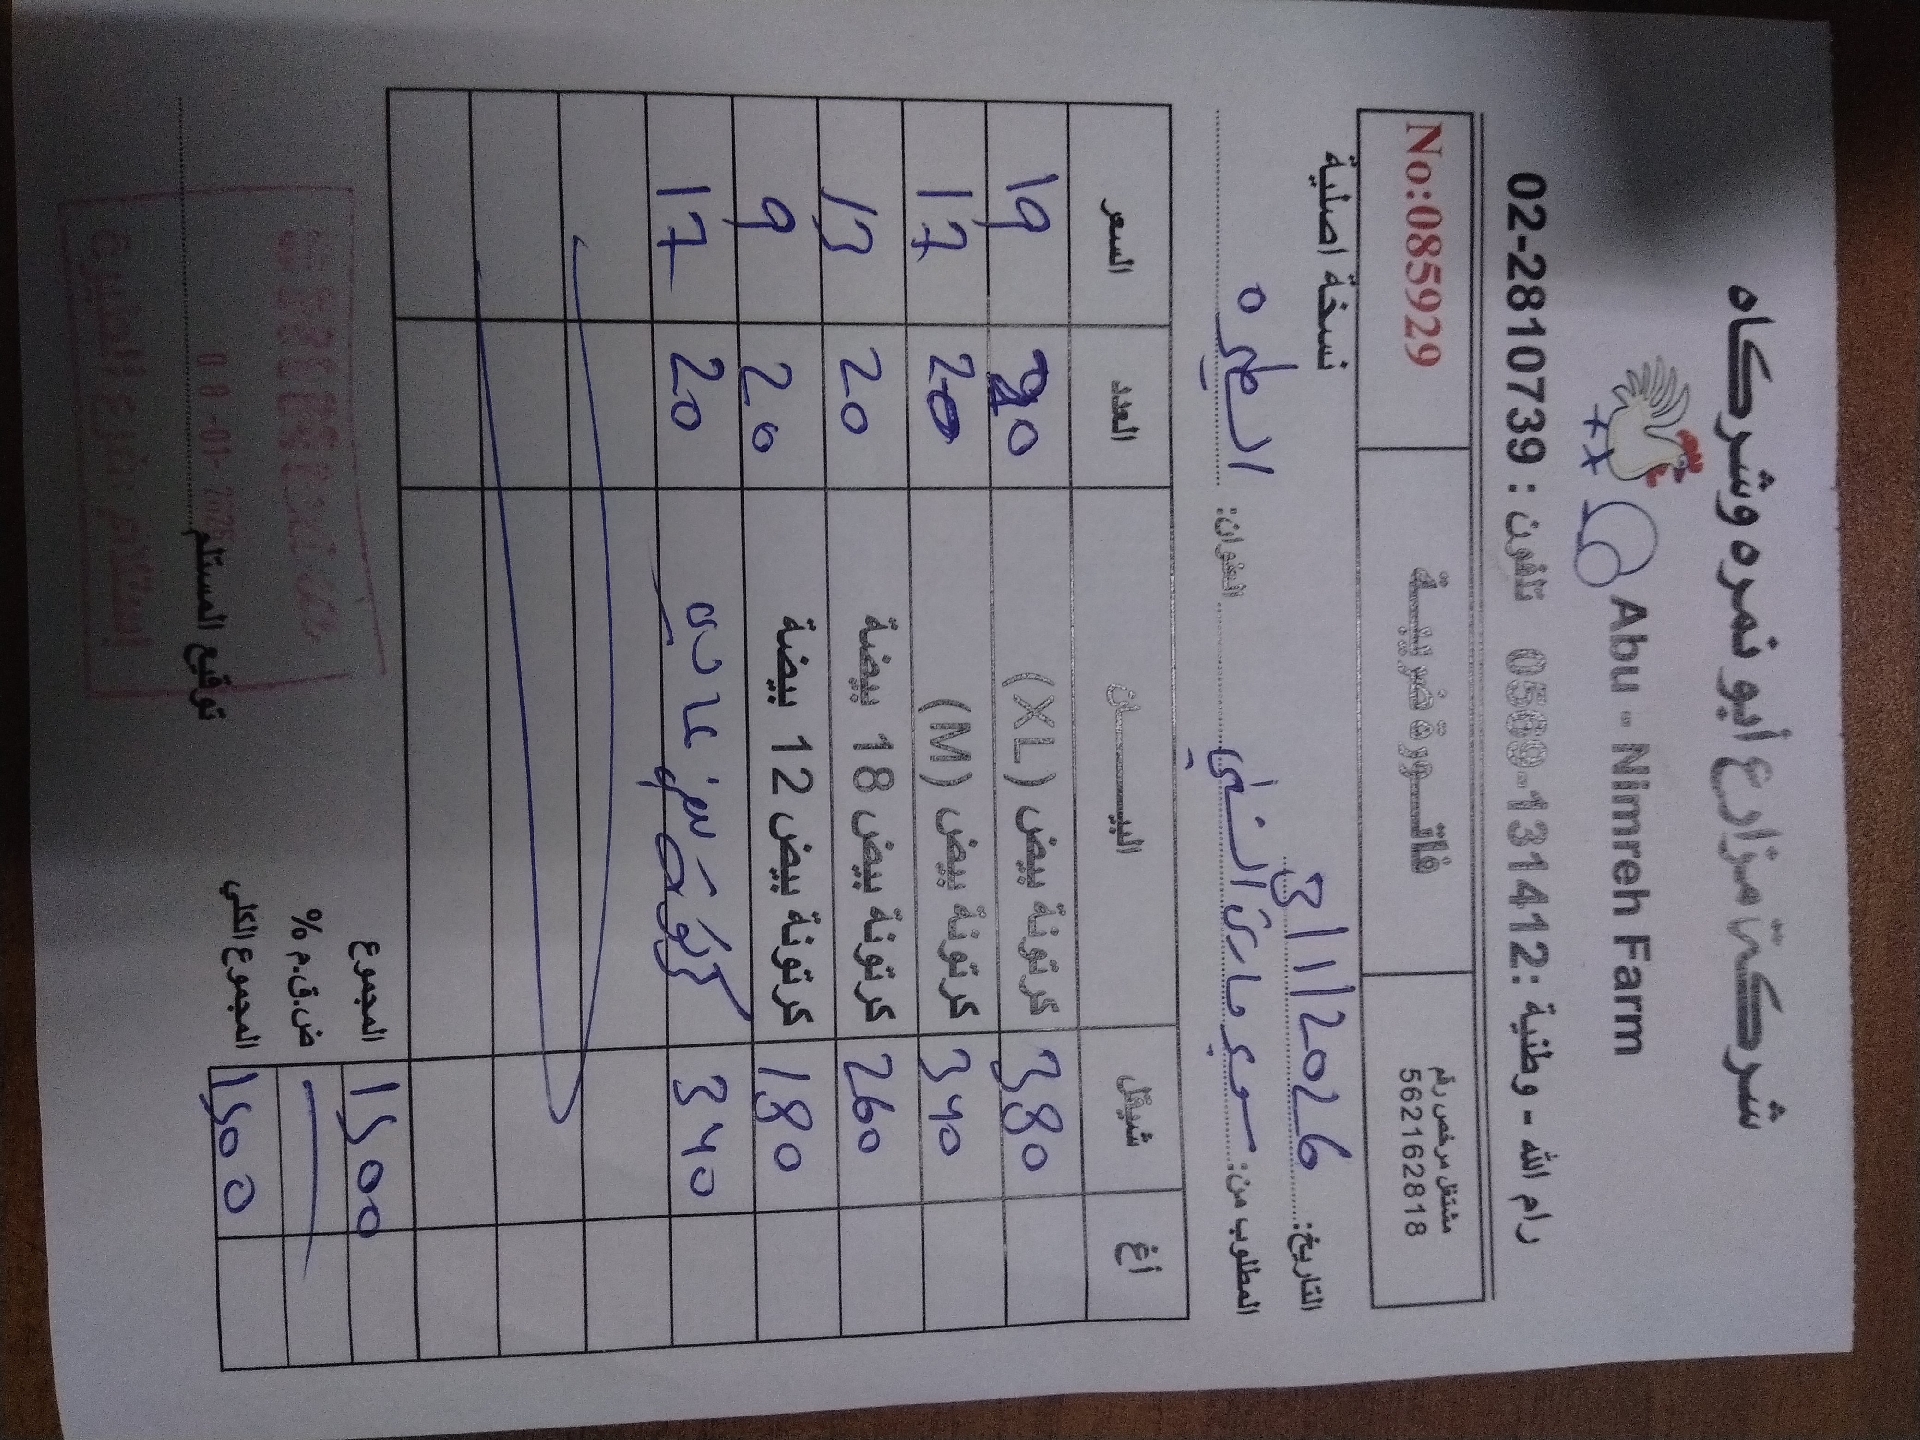 شركة مزارع أبو نمره وشركاه
Abu - Nimreh Farm
رام الله - وطنية : 0569-131412 تلفون : 02-2810739
مشتغل مرخص رقم
562162818
فاتـــورة ضريبيـــة
No:085929
التاريخ: 8/1/2026
نسخة اصلية
المطلوب من: العنوان: الطيره
أغ شيقل البيـــــان العدد السعر
380 كرتونة بيض (XL) 20 19
340 كرتونة بيض (M) 20 17
260 كرتونة بيض 18 بيضة 20 13
180 كرتونة بيض 12 بيضة 20 9
340 عادي 20 17
المجموع 1500
ض.ق.م %
المجموع الكلي 1500
توقيع المستلم